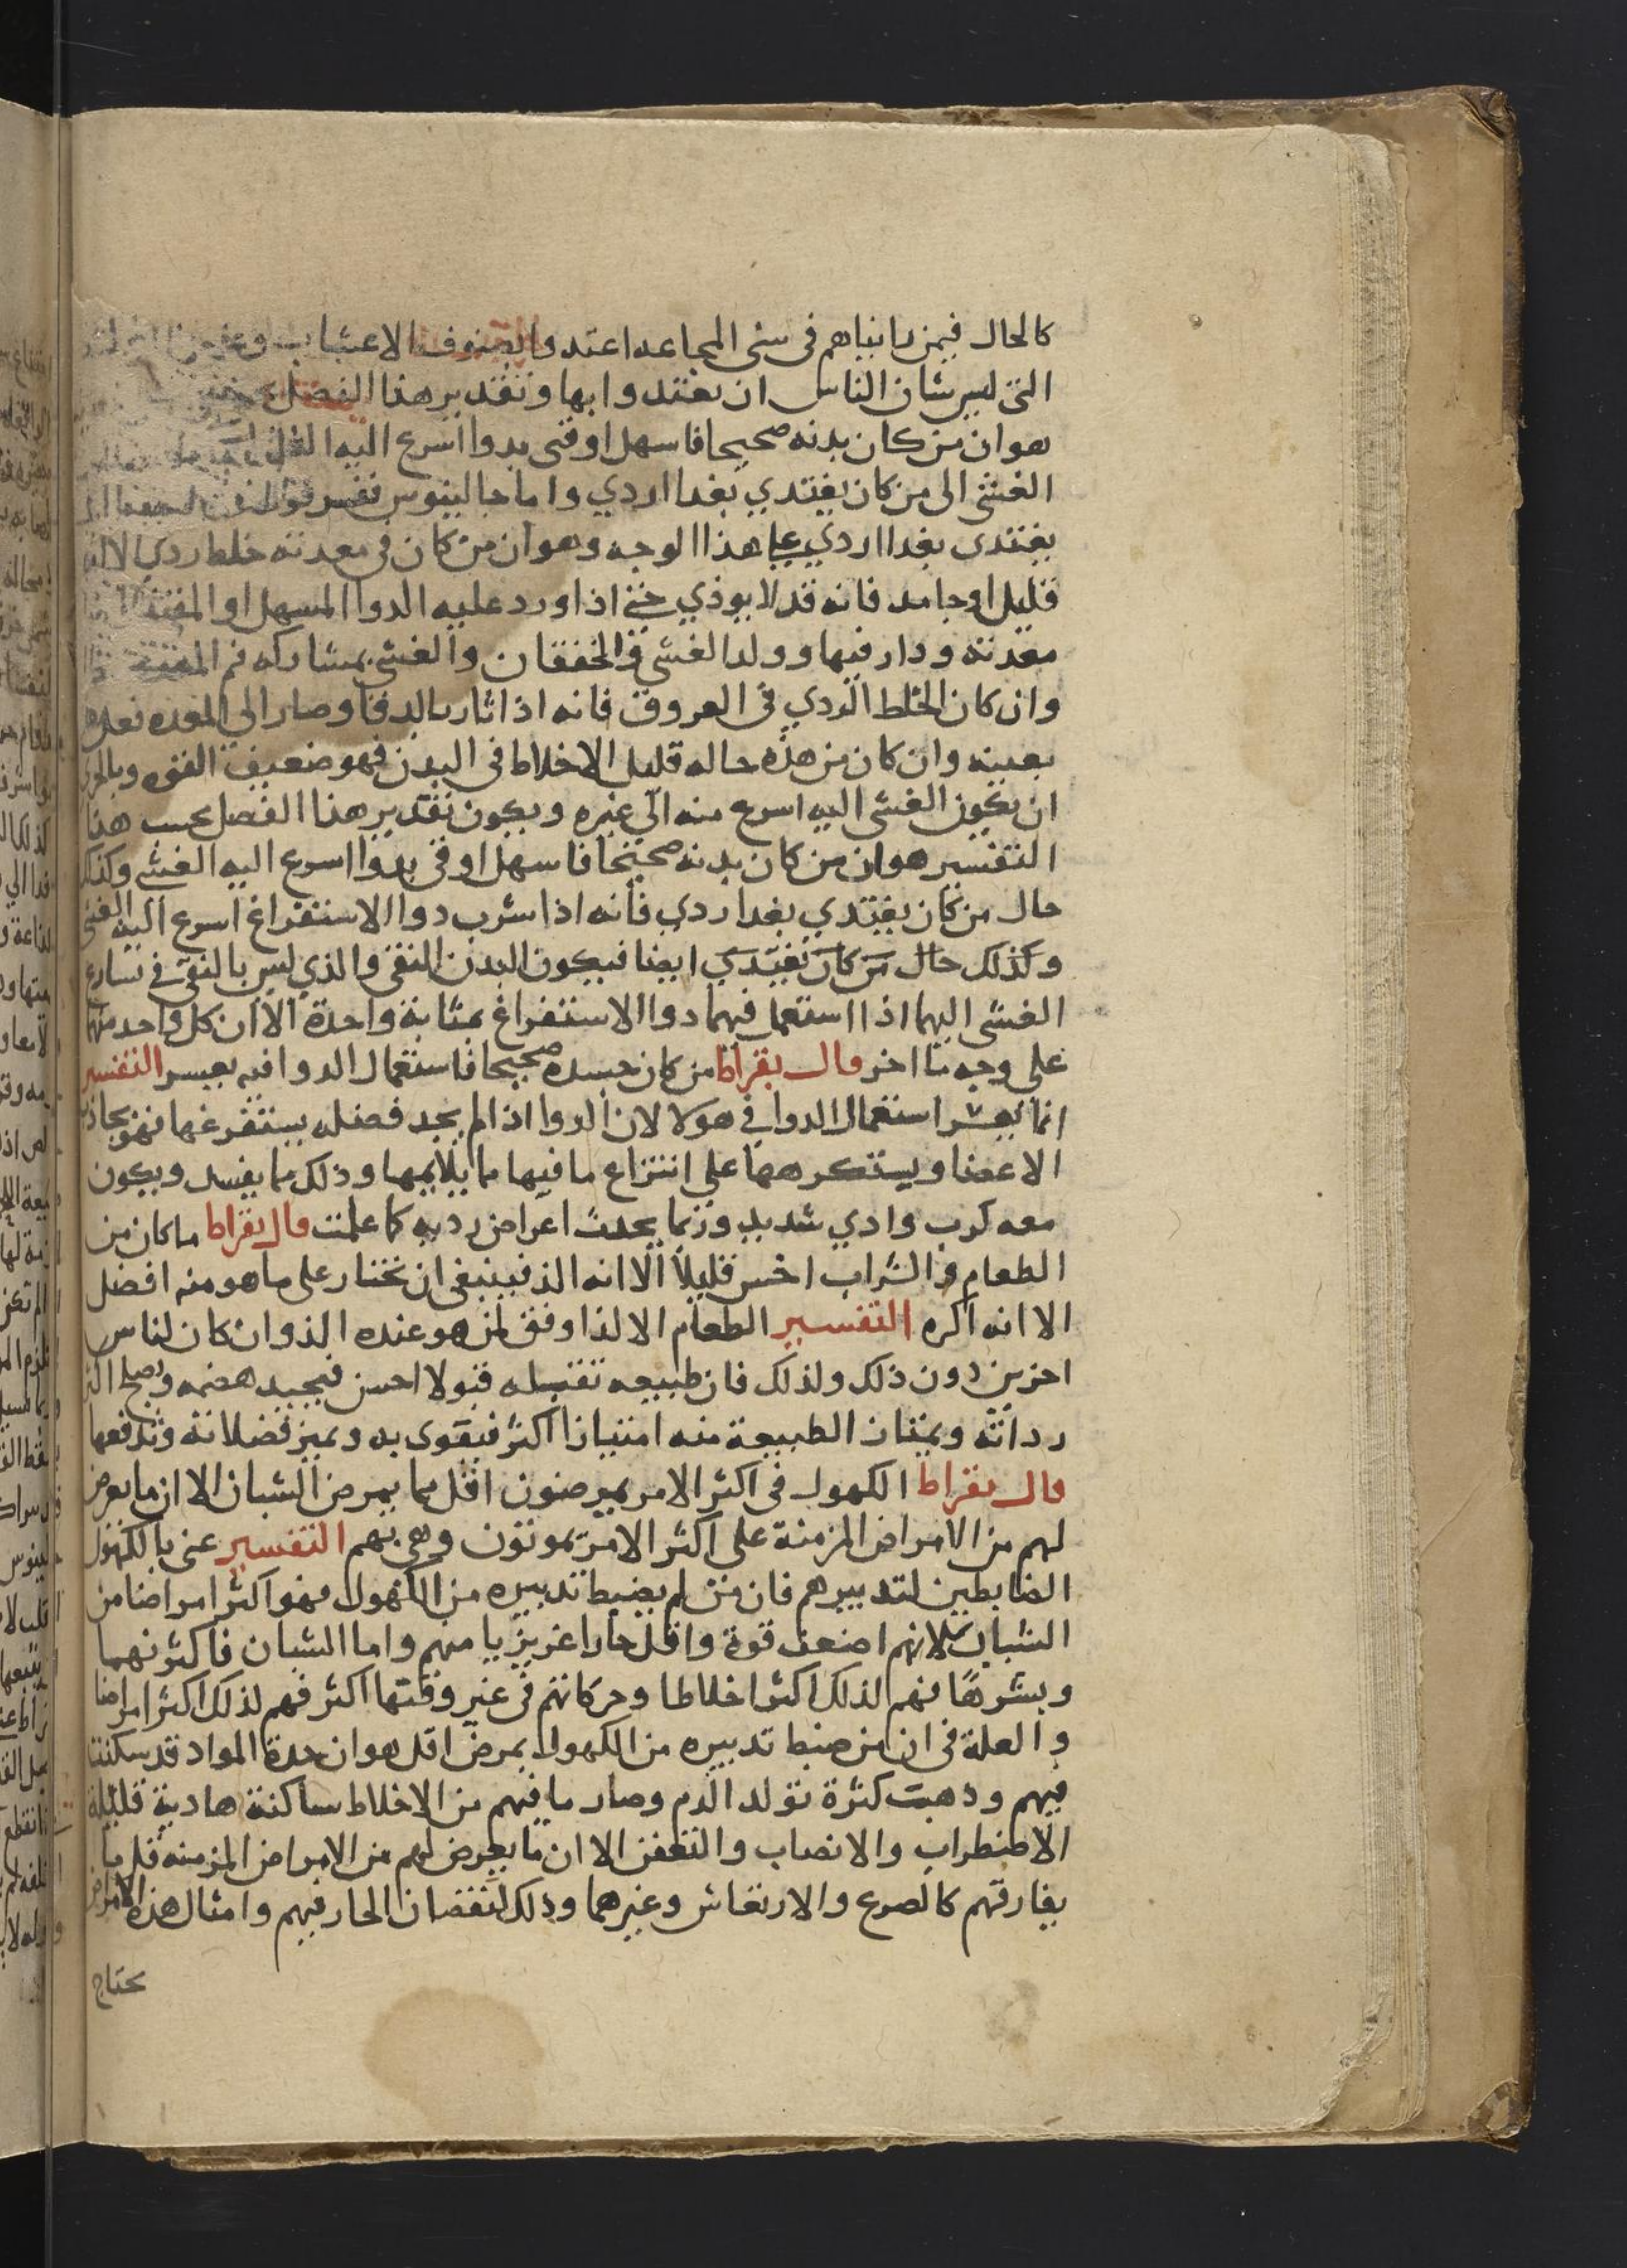 كالحال فيمن راينياهم في سني المجاعه اعتدوا بصنوف الاعشاب
التي ليس شان الناس ان يغتدوا بها وتقدير هذا الفصل
هو ان من كان بدنه صحيحا فاسهل او قيى بدوا اسرع اليه
الغشى الى من كان يغتدي بغدا ردي واما جالينوس ففسر
يغتدى بغدا ردي على هذا الوجه وهو ان من كان في معدته خلط ردي الا انه
قليل او جامد فانه قد لا يوذي حتى اذا ورد عليه الدوا المسهل او المقيئ
معدته ودار فيها وولد الغشي والخفقان والغشى بمشاركه فم المعدة
وان كان الخلط الردي في العروق فانه اذا ثار بالدوا وصار الي المعده فعل
بعينه وان كان من هذه حاله قليل الاخلاط في البدن فهو ضعيف القوه وبالحرى
ان يكون الغشى اليه اسرع منه الى غيره ويكون تقدير هذا الفصل بحسب هذا
التفسير هو ان من كان بدنه صحيحا فاسهل او قى بدوا اسرع اليه الغشى وكذلك
حال من كان يغتدي بغدا ردي فانه اذا شرب دوا الاستفراغ اسرع اليه الغشى
وكذلك حال من كان يغتدي ايضا فيكون البدن النقى والذي ليس بالنقى في تسارع
الغشى اليهما اذا استعمل فيهما دوا الاستفراغ بمثابة واحدة الا ان كل واحد منهما
على وجه ما اخر قال بقراط من كان جسده صحيحا فاستعمال الدوا فيه يعسر التفسير
انما يعسر استعمال الدوا في هولا لان الدوا اذا لم يجد فضله يستفرغها فهو يجاذب
الاعضا ويستكرهها علي انتزاع ما فيها مما يلايمها وذلك مما يفسد ويكون
معه كرب واذي شديد وربما يحدث اعراض رديه كما علمت قال بقراط ما كان من
الطعام والشراب اخس قليلا الا انه الذ فينبغى ان نختار على ما هو منه افضل
الا انه اكره التفسير الطعام الالذ اوفق لمن هو عنده الذ وان كان لناس
اخرين دون ذلك ولذلك فان طبيعه تقتبله قبولا احسن فيجيد هضمه ويصلح اكثر
رداته ويمتاز الطبيعة منه امتيازا اكثر فيقوى به ويميز فضلاته وتدفعها
قال بقراط الكهول في اكثر الامر يمرضون اقل مما يمرض الشبان الا ان ما يعرض
لهم من الامراض المزمنة على اكثر الامر يموتون وهي بهم التفسير عنى بالكهول
الضابطين لتدبيرهم فان من لم يضبط تدبيره من الكهول فهو اكثر امراضا من
الشبان لانهم اضعف قوة واقل حارا غريزيا منهم واما الشبان فاكثرهما
وبشرها فهم لذلك اكثر اخلاطا وحركاتهم في غير وقتها اكثر فهم لذلك اكثر امراضا
والعلة في ان من ضبط تدبيره من الكهول يمرض اقل هو ان حدة المواد قد سكنت
فيهم وذهبت كثرة تولد الدم وصار ما فيهم من الاخلاط ساكنة هادية قليلة
الاضطراب والانصاب والتعفن الا ان ما يعرض لهم من الامراض المزمنه قل ما
يفارقهم كالصرع والارتعاش وغيرهما وذلك لنقصان الحار فيهم وامثال هذه الامراض
يحتاج